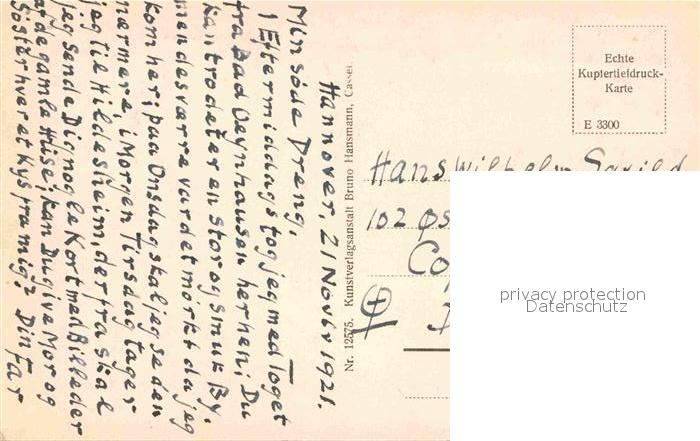 Hannover, 21 Novbr 1921.
Min söde Dreng,
I Eftermiddags tog jeg med Toget
fra Bad Oeynhausen herhen; Du
kan tro det er en stor og smuk By.
men desværre var det mörkt da jeg
kom her; paa Onsdag skal jeg se den
nærmere, i Morgen Tirsdag tager
jeg til Hildesheim, derfra skal
jeg sende Dig nogle Kort med Billeder
at de gamle Huse; kan Du give Mor og
Søster hver et Kys fra mig? Din Far
Nr. 12575. Kunstverlagsanstalt Bruno Hansmann, Cassel.
Echte
Kupfertiefdruck-
Karte
E 3300
Hans Wilhelm
102 Øs
Co
privacy protection
Datenschutz